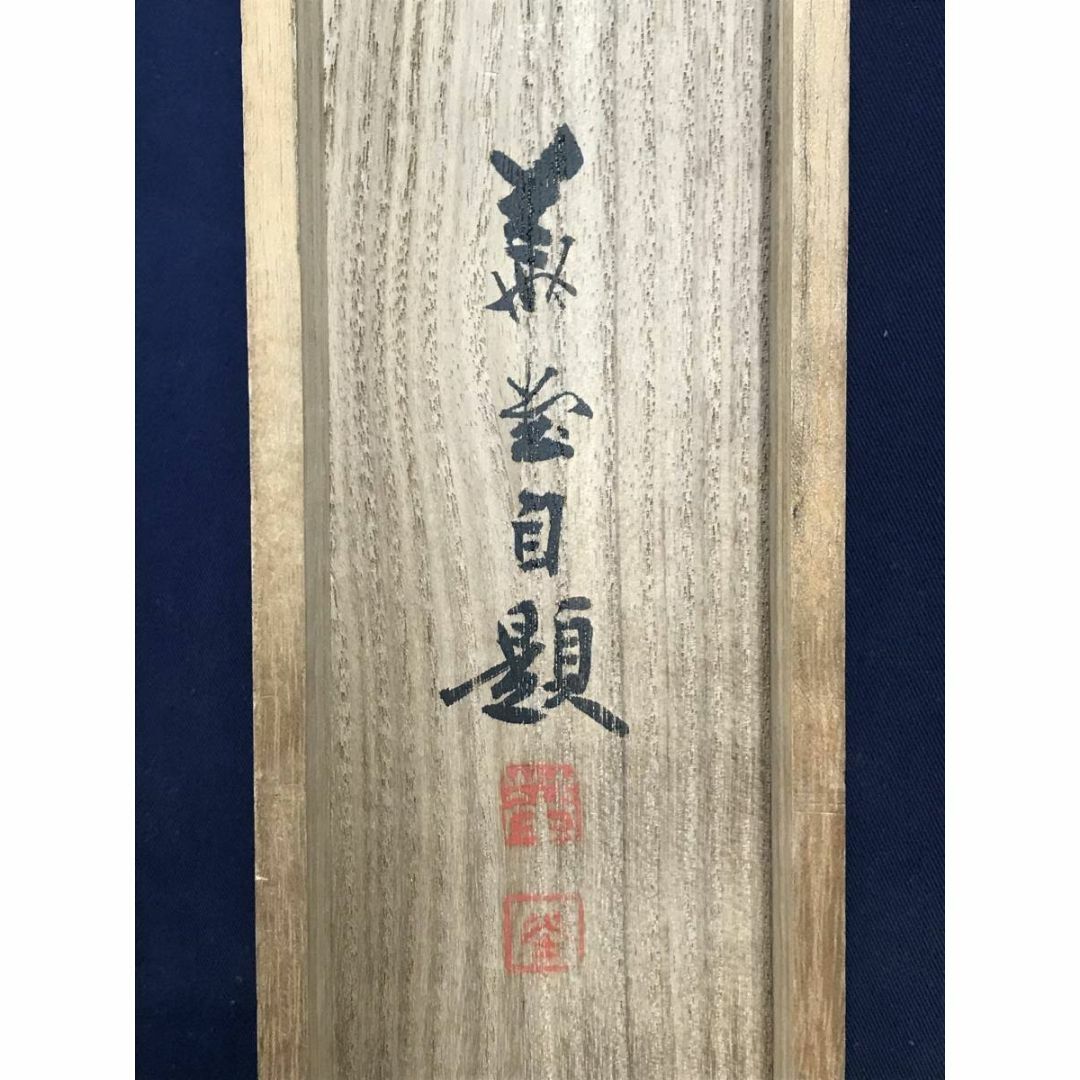 義堂自題